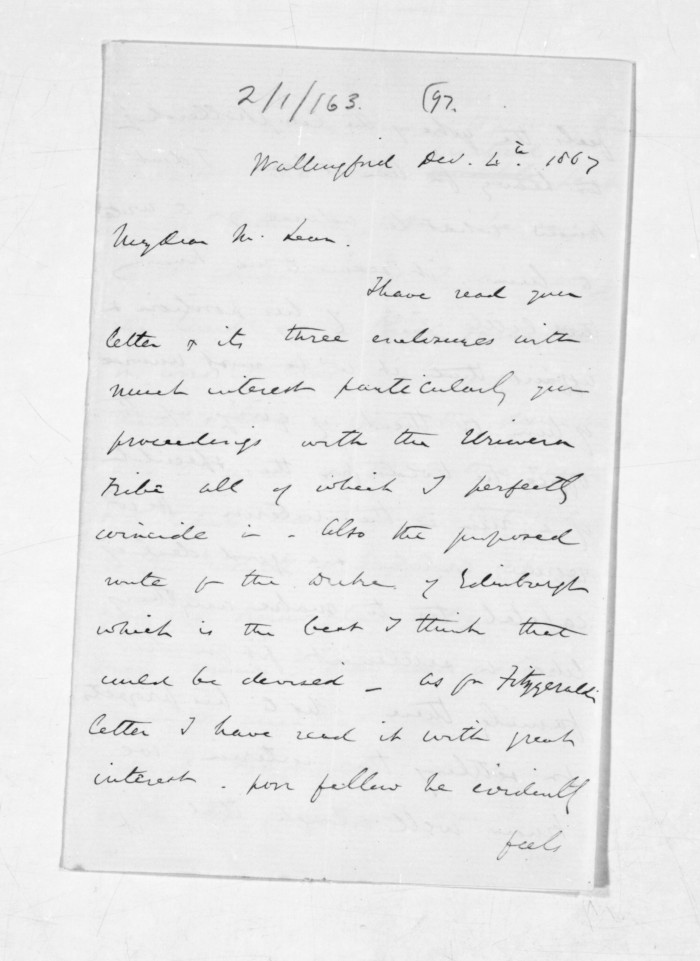 2/1/163. (97.
Wallingford Dec. 4th 1867
My dear Mr. Lean.
I have read your
letter & its three enclosures with
much interest particularly your
proceedings with the Uriwera
tribe all of which I perfectly
coincide in - Also the proposed
route for the Duke of Edinburgh
which is the best I think that
could be devised - as for Fitzgeralds
letter I have read it with great
interest - poor fellow he evidently
feels